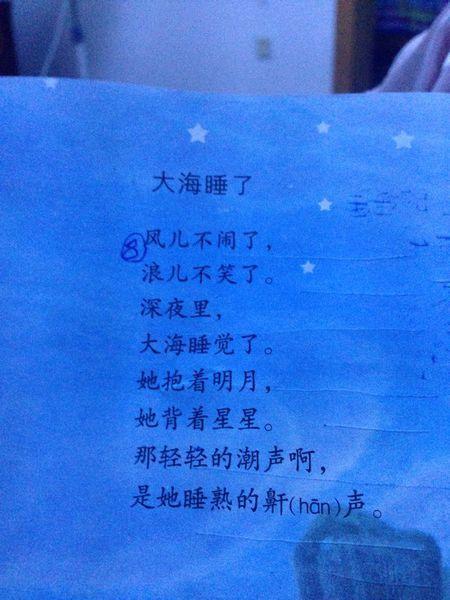 大海睡了
⑧风儿不闹了，
浪儿不笑了。
深夜里，
大海睡觉了。
她抱着明月，
她背着星星。
那轻轻的潮声啊，
是她睡熟的鼾(hān)声。